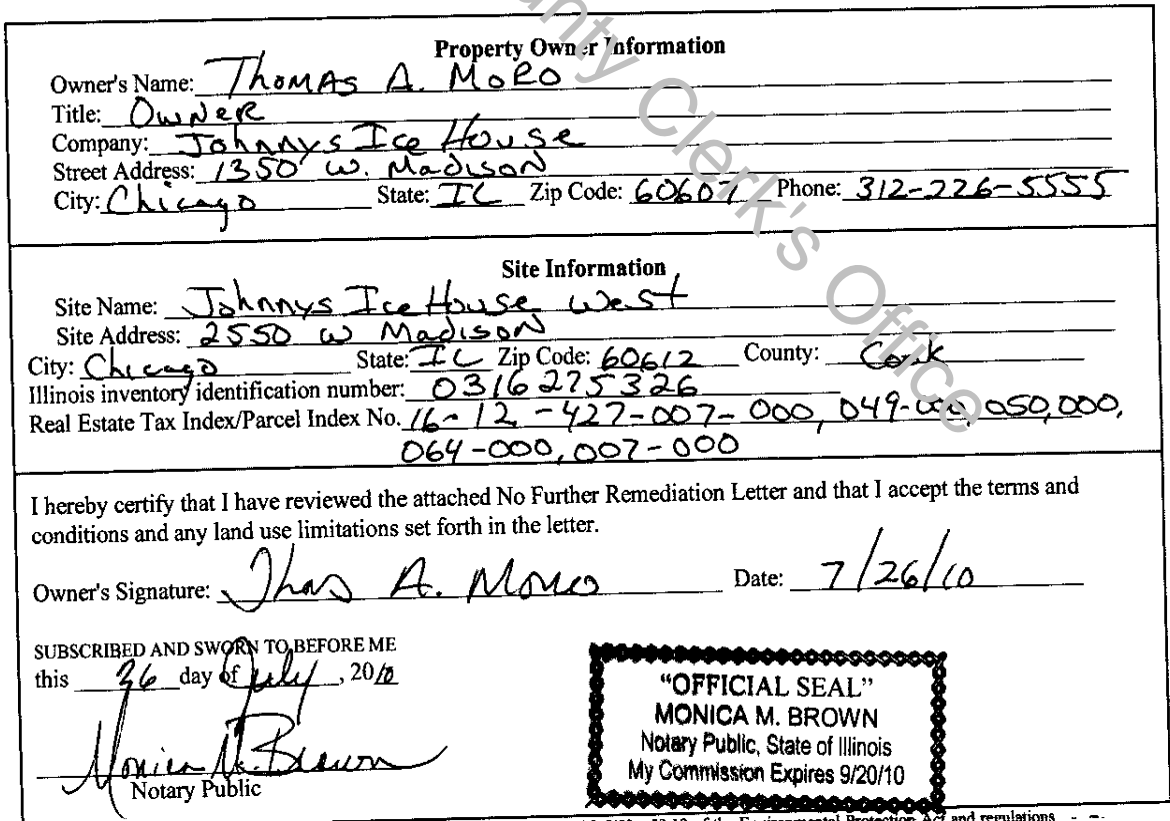 County Clerk's Office
Property Owner Information
Owner's Name: Thomas A. Moro
Title: Owner
Company: Johnnys Ice House
Street Address: 1350 W. Madison
City: Chicago State: IL Zip Code: 60607 Phone: 312-226-5555
Site Information
Site Name: Johnnys Ice House West
Site Address: 2550 W Madison
City: Chicago State: IL Zip Code: 60612 County: Cook
Illinois inventory identification number: 0316275326
Real Estate Tax Index/Parcel Index No. 16-12-427-007-000, 049-000, 050,000,
064-000, 007-000
I hereby certify that I have reviewed the attached No Further Remediation Letter and that I accept the terms and
conditions and any land use limitations set forth in the letter.
Owner's Signature: Thos A. Moro Date: 7/26/10
SUBSCRIBED AND SWORN TO BEFORE ME
this 26 day of July, 2010
Monica M. Brown
Notary Public
"OFFICIAL SEAL"
MONICA M. BROWN
Notary Public, State of Illinois
My Commission Expires 9/20/10
of the Environmental Protection Act and regulations